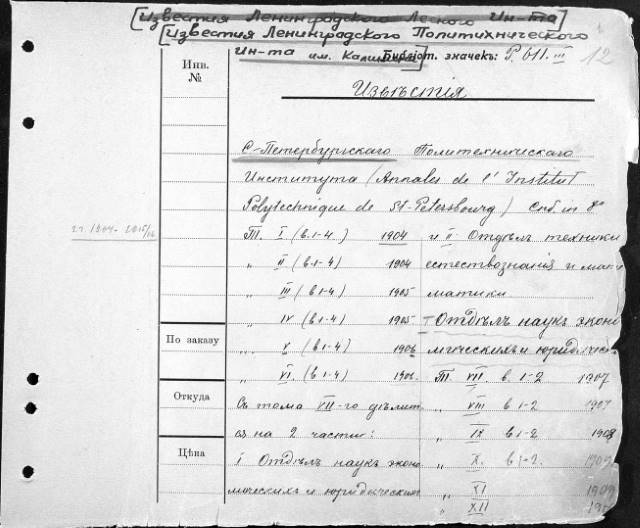 [Известия Ленинградского Лесного Ин-та]
[Известия Ленинградского Политехнического
Ин-та им. Калинина] Библіот. значекъ: Р. 611. III 12
Инв.
№
Извѣстія
С-Петербургскаго Политехническаго
Института (Annales de l'Institut
Polytechnique de St-Petersbourg) Спб. in 8°
Т. I (в. 1-4.) 1904
„ II (в. 1-4) 1904
„ III (в 1-4) 1905
„ IV (в. 1-4) 1905
„ V (в 1-4) 1906
„ VI. (в 1-4) 1906.
Съ тома VII-го дѣлит.
ся на 2 части:
I Отдѣлъ наукъ эконо
мическихъ и юридическихъ
и II Отдѣлъ техники
естествознанія и мате
матики
– Отдѣлъ наукъ эконо
мическихъ и юридическ.
Т. VII. в. 1-2 1907
„ VIII в 1-2 1907
„ IX в 1-2 1908
„ X. в 1-2. 1909
„ XI 1909
„ XII
По заказу
Откуда
Цѣна